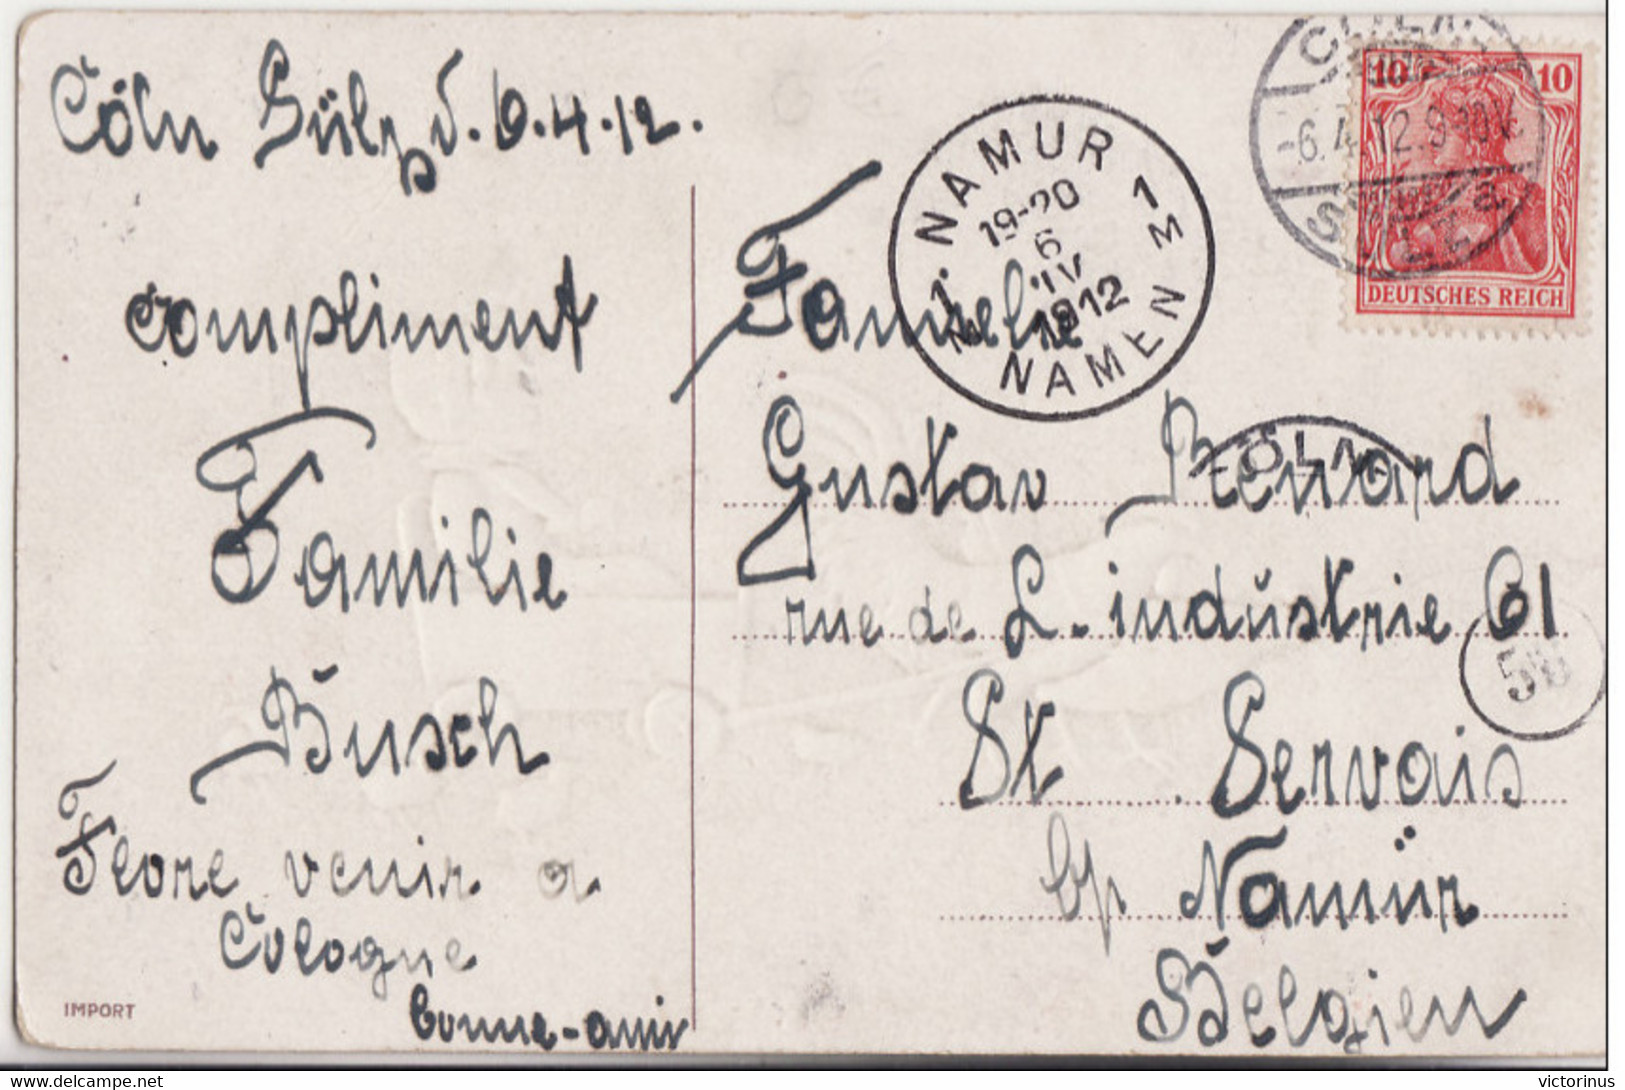 Cöln Sülz d. 6.4.12.
compliment
Familie
Busch
venir a
Cologne
bonne-ami
IMPORT
Familie
Gustav Renard
rue de L. industrie 61
St Servais
bp Namür
Belgien
NAMUR 1
19-20
6
IV
1912
NAMEN 1
CÖLN
-6.4.12.9
10 10
DEUTSCHES REICH
CÖLN
58
victorinus